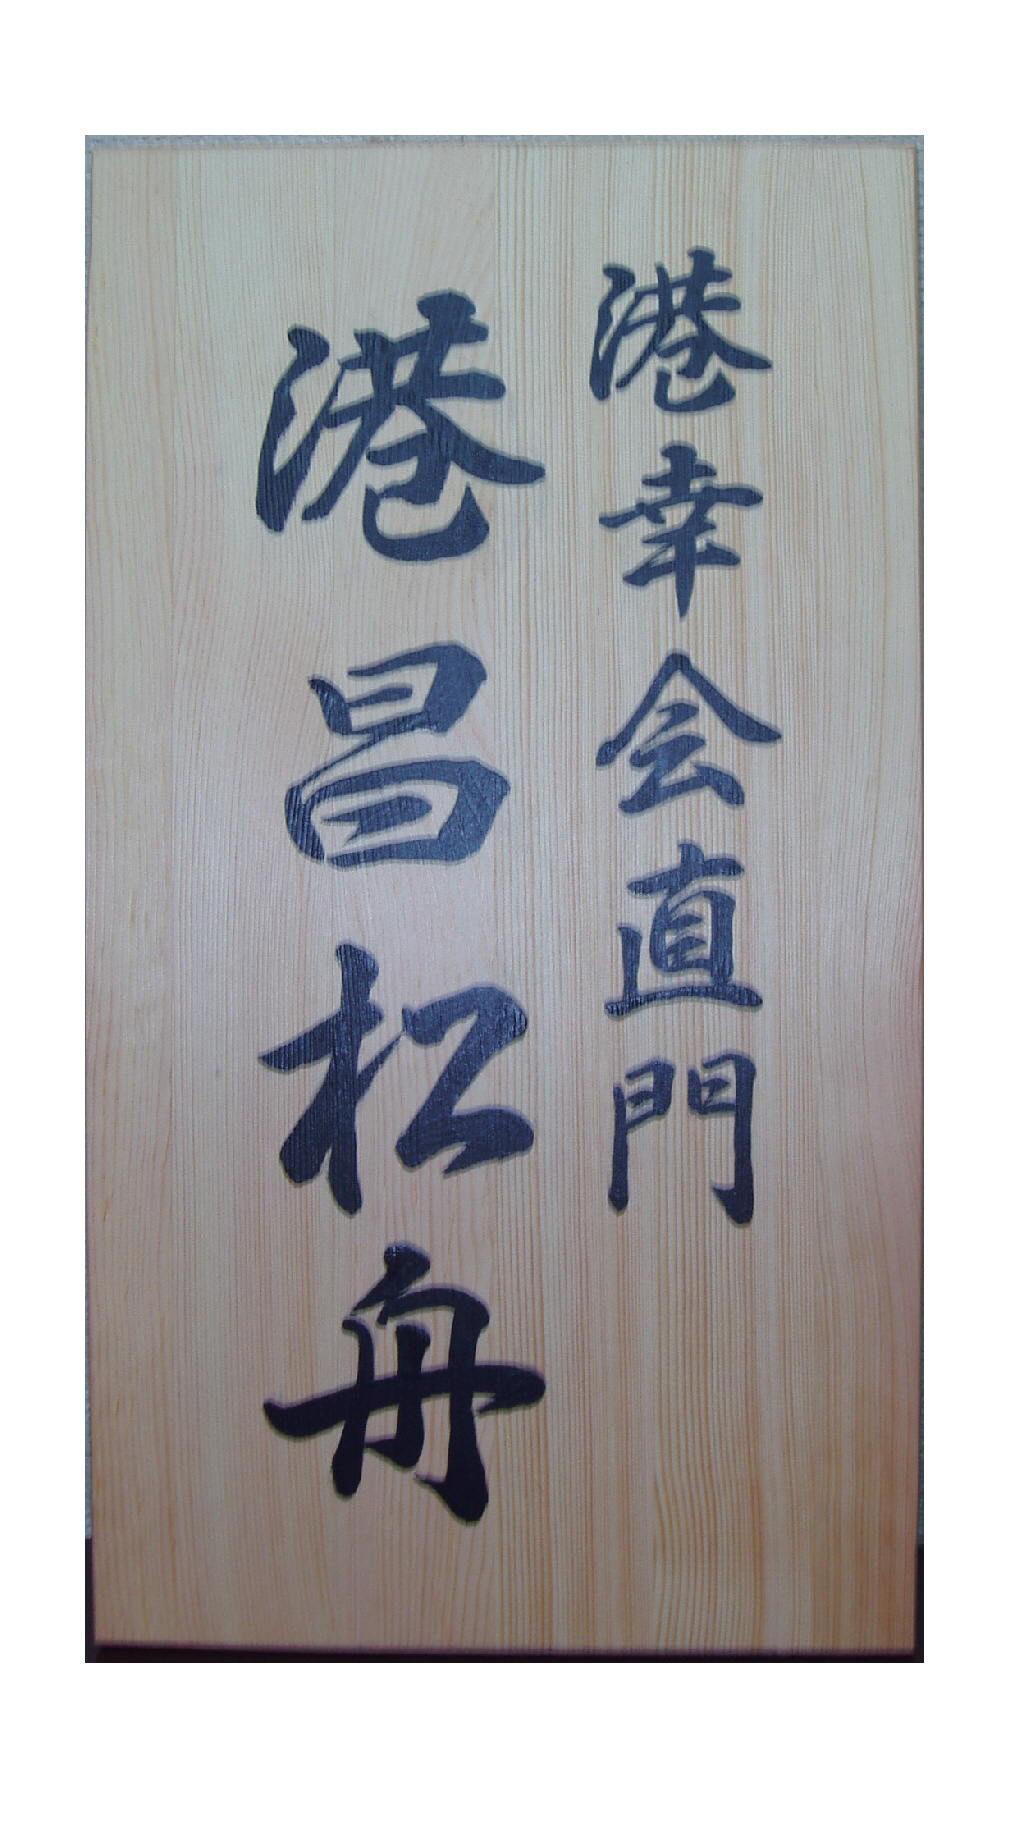 港幸会直門
港昌松舟